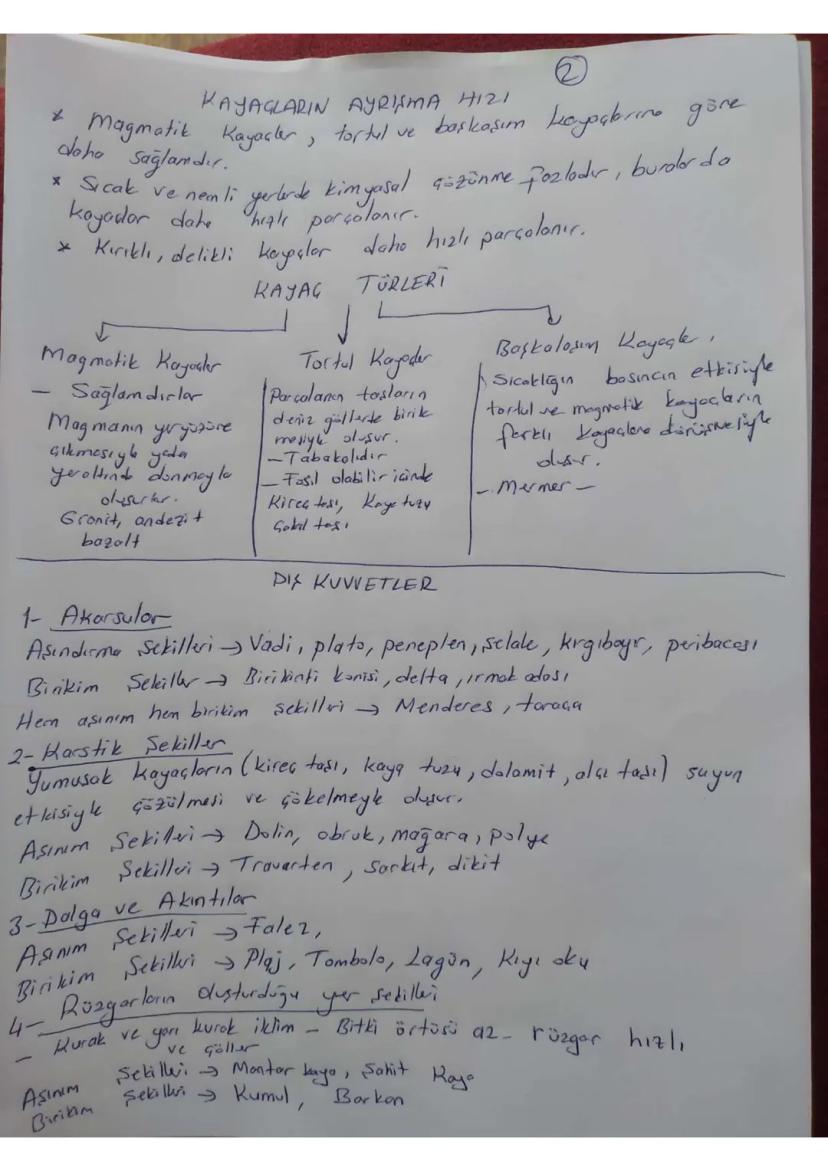 2
KAYAÇLARIN AYRIŞMA HIZI
* Magmatik Kayaçlar, tortul ve başkaşım kayaçlarına göre
daha sağlamdır.
* Sıcak ve nemli yerlerde kimyasal çözünme fazladır, buralarda
kayaçlar daha hızlı parçalanır.
* Kırıklı, delikli kayaçlar daha hızlı parçalanır.
KAYAÇ TÜRLERİ
Magmatik Kayaçlar
- Sağlamdırlar
Magmanın yeryüzüne
çıkmasıyla yada
yeraltında donmayla
oluşurlar.
Granit, andezit
bazalt
Tortul Kayaçlar
Parçalanan taşların
deniz göllerde birik
mesiyle oluşur.
- Tabakalıdır
- Fosil olabilir içinde
Kireç taşı, Kaya tuzu
Çakıl taşı
Başkalaşım Kayaçlar
Sıcaklığın basıncın etkisiyle
tortul ve magmatik kayaçların
farklı kayaçlara dönüşmesiyle
oluşur.
- Mermer -
DIŞ KUVVETLER
1- Akarsular
Aşındırma Şekilleri → Vadi, plato, peneplen, şelale, kırgıbayır, peribacası
Birikim Şekiller → Birikinti konisi, delta, ırmak adası
Hem aşınım hem birikim şekilleri → Menderes, taraça
2- Karstik Şekiller
Yumuşak kayaçların (kireç taşı, kaya tuzu, dolomit, alçı taşı) suyun
etkisiyle çözülmesi ve çökelmeyle oluşur.
Aşınım Şekilleri → Dolin, obruk, mağara, polye
Birikim Şekilleri → Travarten, sarkıt, dikit
3- Dalga ve Akıntılar
Aşınım Şekilleri → Falez,
Birikim Şekilleri → Plaj, Tombolo, Lagün, Kıyı oku
4- Rüzgarların oluşturduğu yer şekilleri
- Kurak ve yarı kurak iklim - Bitki örtüsü az - rüzgar hızlı
ve çöller
Aşınım Şekilleri → Mantar kaya, Şahit Kaya
Birikim Şekilleri → Kumul, Barkan